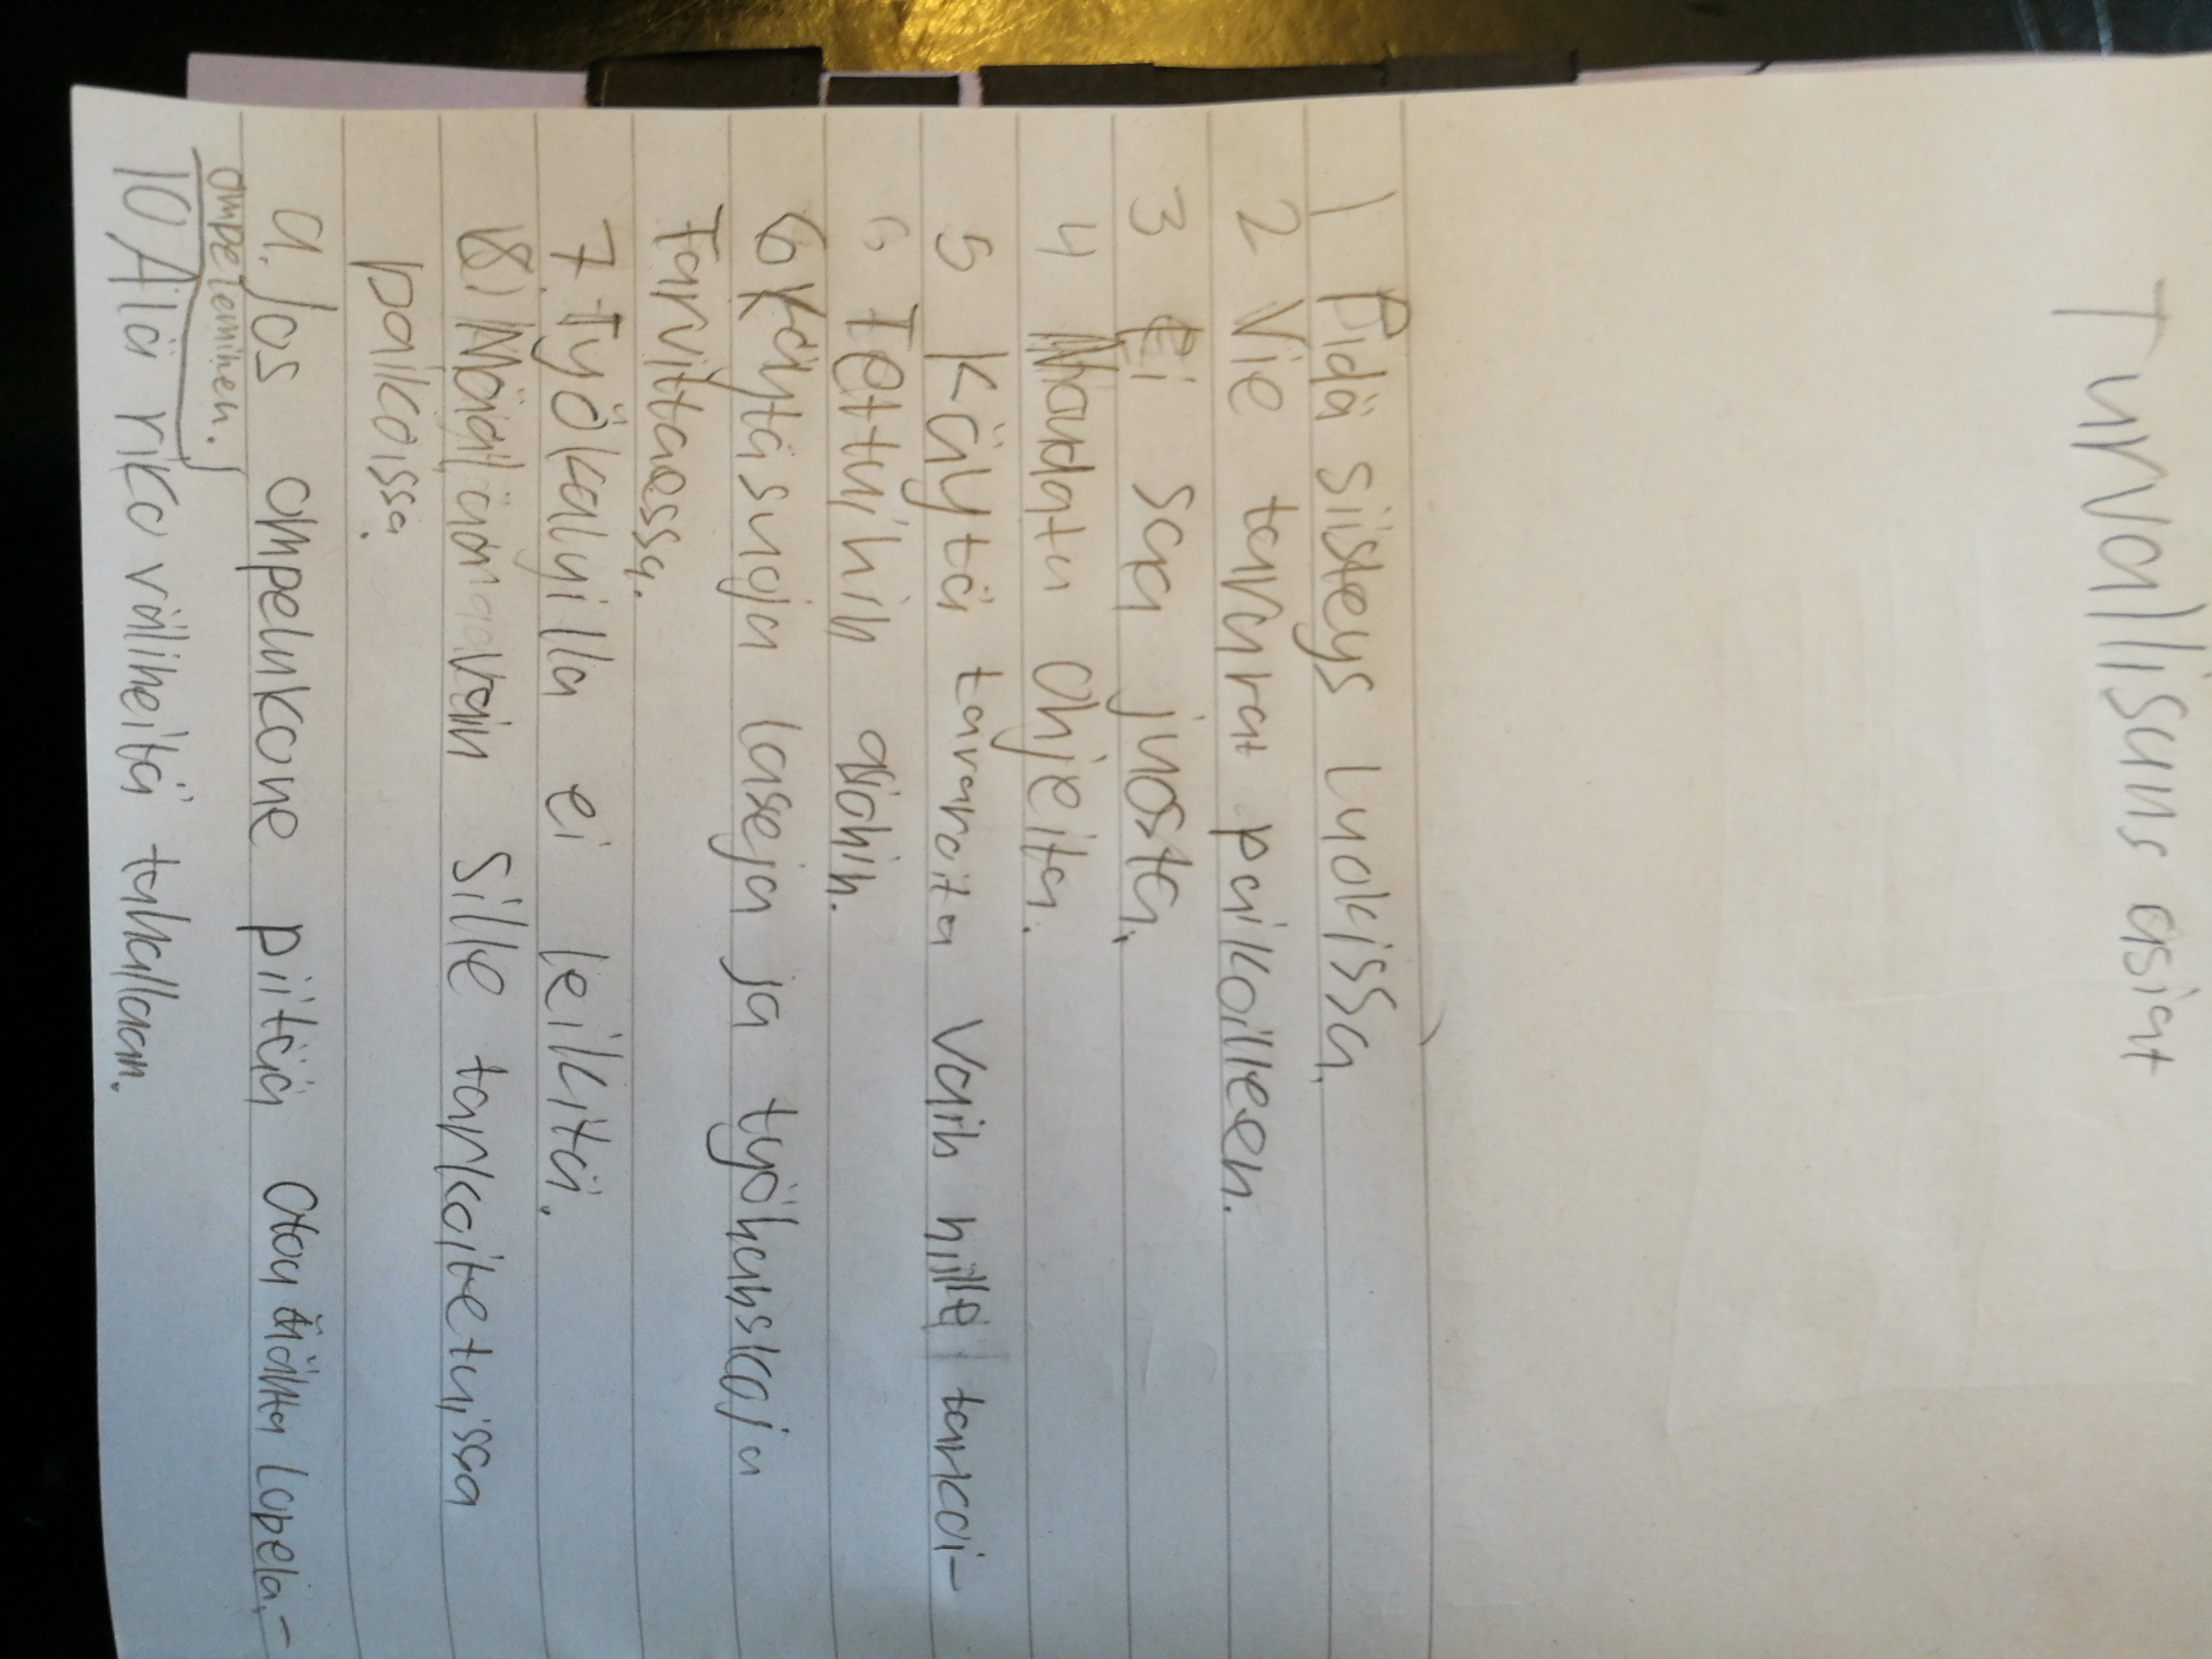 Turvallisuus asiat
1 Pidä siisteys luokissa.
2 Vie tavarat paikoilleen.
3 Ei saa juosta.
4 Noudata ohjeita.
5 Käytä tavaroita vain niille tarkoi-
6 Tettuihin asioihin.
6 Käytä suoja laseja ja työhanskoja
Tarvittaessa.
7. Työkaluilla ei leikitä.
8. Maalaa vain sille tarkoitetuissa
paikoissa.
9. Jos ompelukone piitää outoa ääntä lopeta,-
ompeleminen.
10 Älä riko välineitä tahallaan.